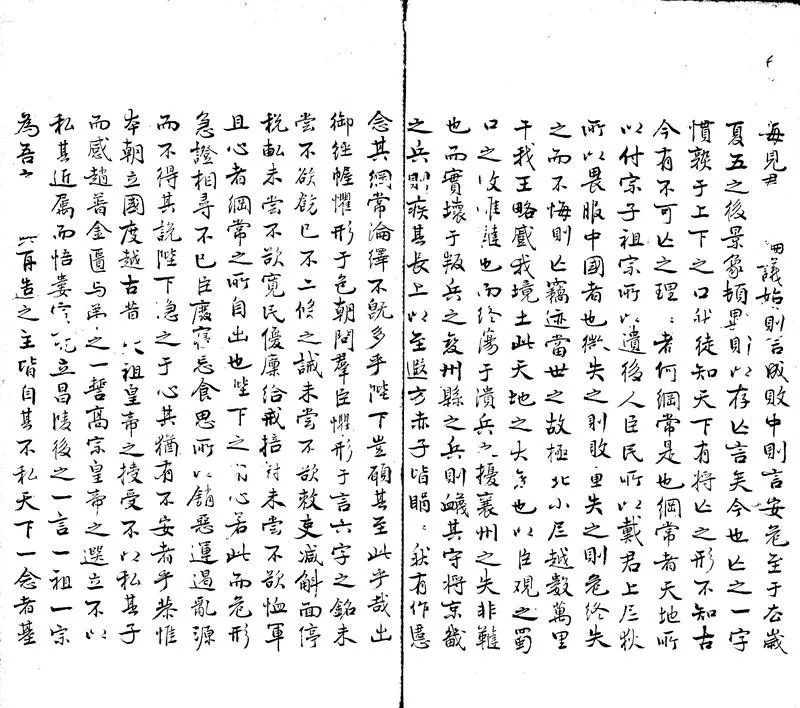 每見 議始則言成敗中則言安危至于去歲
夏五之後景象頓異則以存亡言矣今也亡之一字
慣熟于上下之口然徒知天下有將亡之形不知古
今有不可亡之理理者何綱常是也綱常者天地所
以付宗子祖宗所以遺後人臣民所以戴君上戎狄
所以畏服中國者也微失之則敗重失之則危終失
之而不悔則亡竊迹當世之故極北小戎越數萬里
干我王略蹙我境土此天地之大變也以臣觀之蜀
口之攻惟讎也而終蕩于潰兵之擾襄州之失非讎
也而實壞于叛兵之變州縣之兵則衊其守將京畿
之兵則疾其長上以至遐方赤子皆睊睊然有作慝
念其綱常淪繹不旣多乎陛下豈願其至此乎哉出
御經幄懼形于色朝問羣臣懼形于言六字之銘未
嘗不欲飭己不二條之誡未嘗不欲敕吏減斛面停
稅畝未嘗不欲寬民優廩給戒掊尅未嘗不欲恤軍
且心者綱常之所自出也陛下之 心若此而危形
急證相尋不已臣廢寢忘食思所以銷惡運遏亂源
而不得其說陛下急之于心其猶有不安者乎恭惟
本朝立國度越古昔 祖皇帝之授受不以私其子
而感趙普金匱与 之一誓高宗皇帝之選立不以
私其近屬而悟婁寅亮立昌陵後之一言一祖一宗
為吾 再造之主皆自其不私天下一念者基